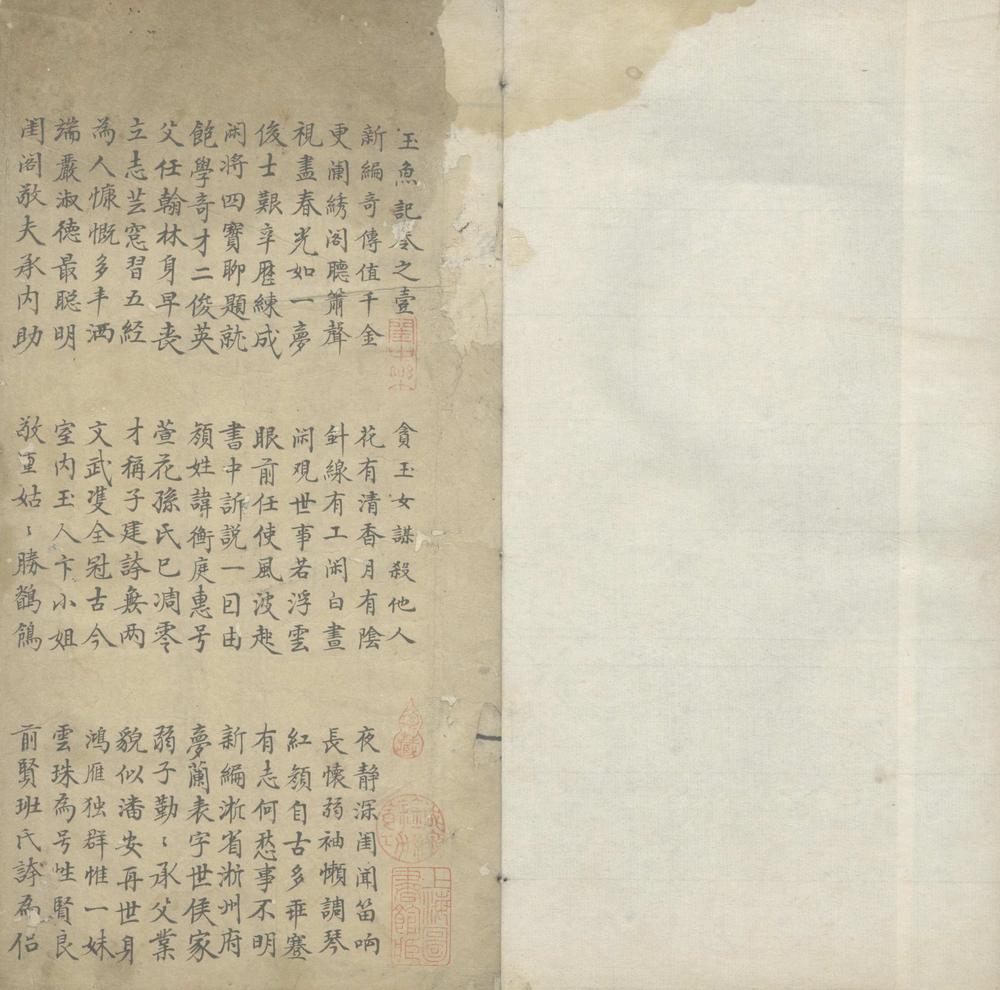 玉魚記卷之壹　貪玉女謀殺他人
新編奇傳值千金　花有清香月有陰　夜静深闺闻笛响
更闌綉阁聽簫聲　針線有工闲白晝　長懷弱袖懶調琴
視盡春光如一夢　闲观世事若浮雲　紅顔自古多乖蹇
俊士艱辛歷練成　眼前任使風波起　有志何愁事不明
闲将四寶聊題就　書中訴説一囙由　新編淅省淅州府
飽學奇才二俊英　顔姓諱衡庭惠号　夢蘭表字世侯家
父任翰林身早丧　萱花孫氏已凋零　弱子勤〻承父業
立志芸窓習五経　才稱子建誇無两　貌似潘安再世身
為人慷慨多丰洒　文武雙全冠古今　鴻雁独群惟一妹
端嚴淑德最聪明　室内玉人卞小姐　雲珠為号性賢良
闺阁敬夫承内助　敬重姑〻勝鶺鴒　前賢班氏誇為侣
上海圖書館藏